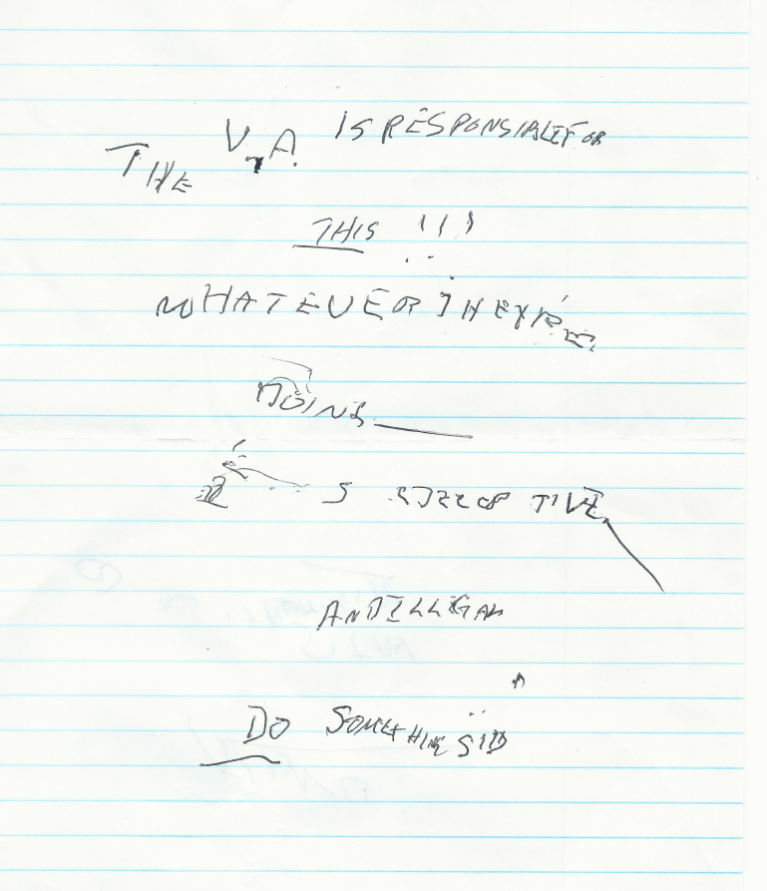 THE V.A. IS RESPONSIBLE FOR
THIS !!!
WHATEVER THEY'RE
DOING
AND ILLEGAL
DO SOMETHING